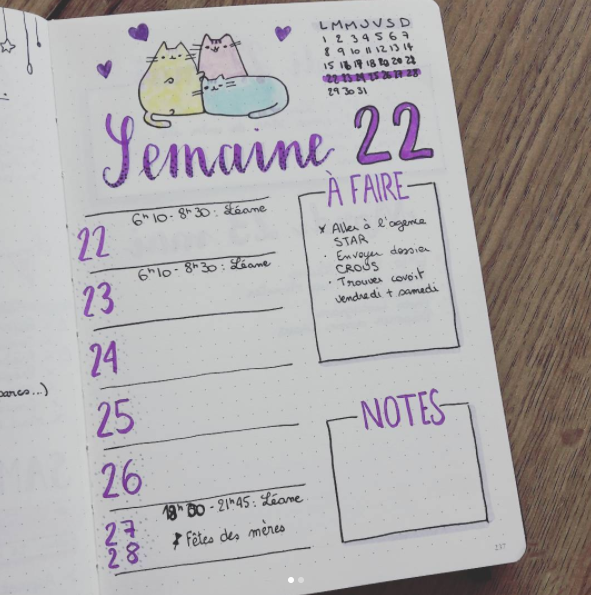 L M M J V S D
1 2 3 4 5 6 7
8 9 10 11 12 13 14
15 16 17 18 19 20 21
22 23 24 25 26 27 28
29 30 31
Semaine 22
22
6h10-8h30 : Léane
23
6h10-8h30 : Léane
24
25
26
27
- 21h45 : Léane
28
Fêtes des mères
À FAIRE
Aller à l'agence
STAR
· Envoyer dossier
CROUS
· Trouver covoit
vendredi + samedi
NOTES